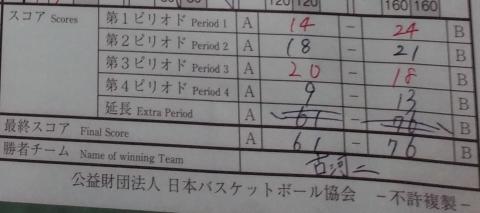 120 120 160 160
スコア Scores 第1ピリオド Period 1 A 14 - 24 B
第2ピリオド Period 2 A 18 - 21 B
第3ピリオド Period 3 A 20 - 18 B
第4ピリオド Period 4 A 9 - 13 B
延長 Extra Period A 61 - 76 B
最終スコア Final Score A 61 - 76 B
勝者チーム Name of winning Team 古河二
公益財団法人 日本バスケットボール協会 -不許複製-